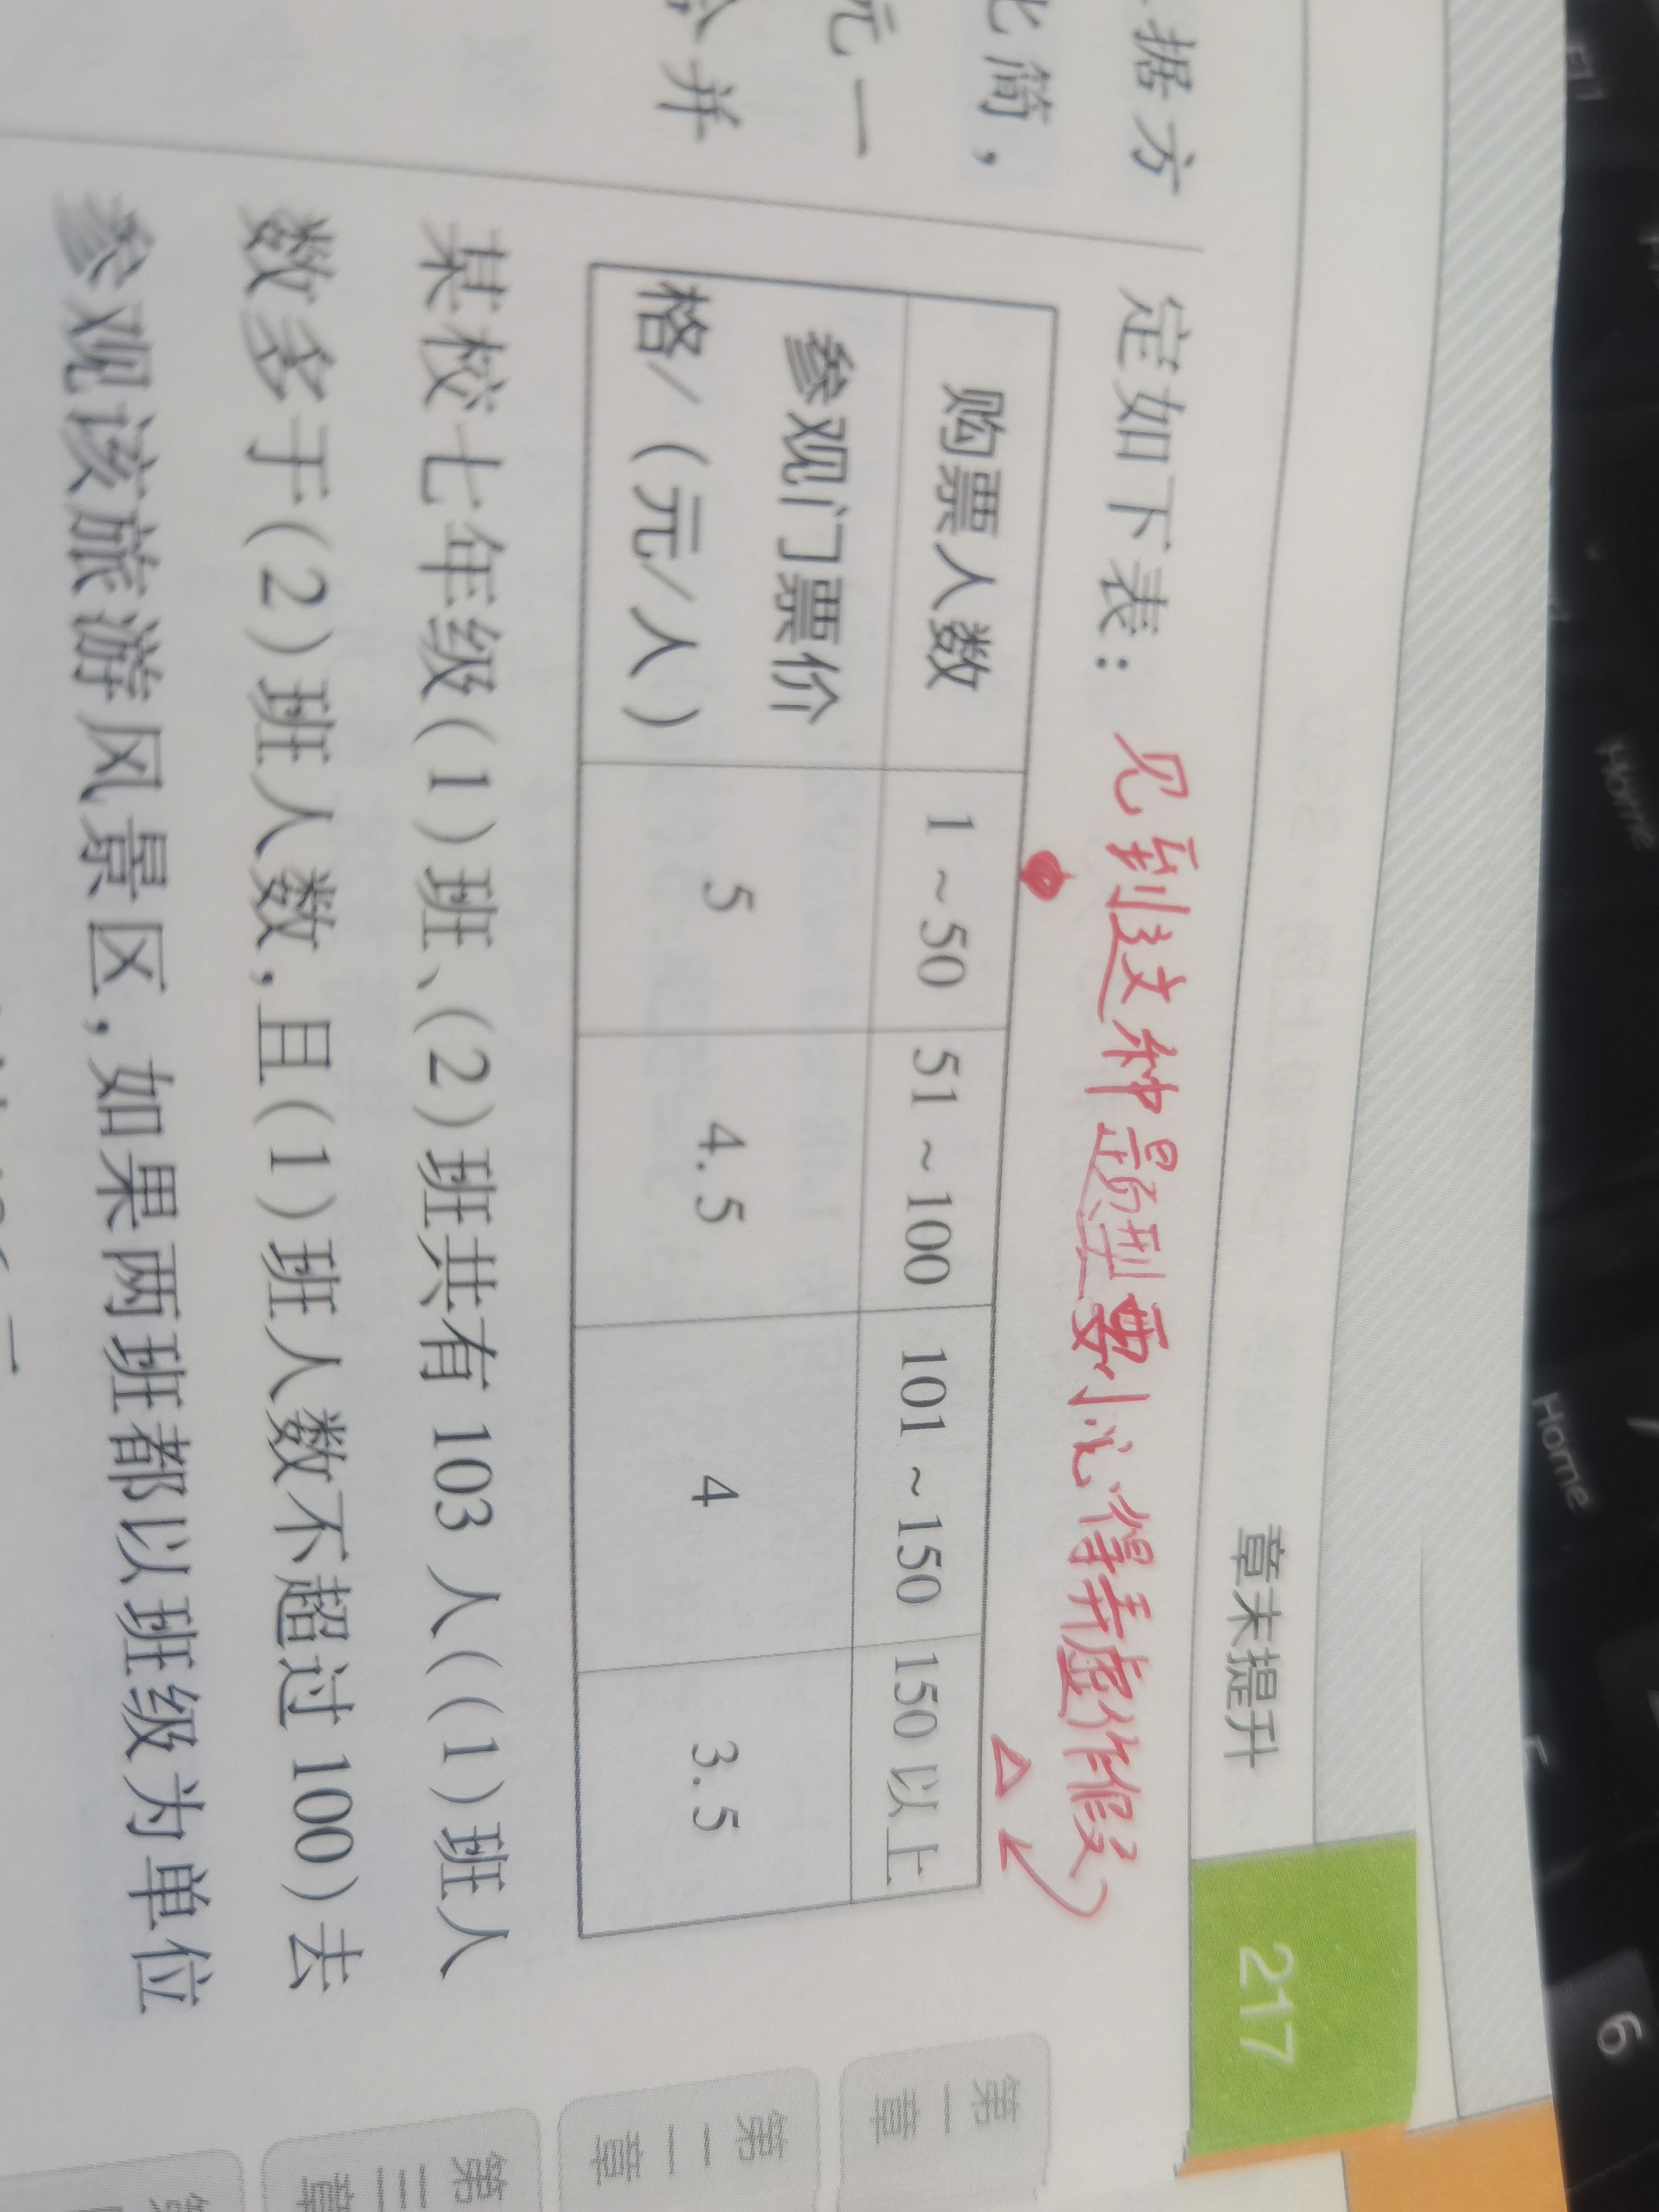 章末提升
217
据方
化简,
元一
并
定如下表: 见到这种题型要小心得弄虚作假
购票人数 1~50 51~100 101~150 150以上
参观门票价格/(元/人) 5 4.5 4 3.5
某校七年级(1)班、(2)班共有103人((1)班人
数多于(2)班人数,且(1)班人数不超过100)去
参观该旅游风景区,如果两班都以班级为单位
第一章
第二章
第三章
Home
Home
6